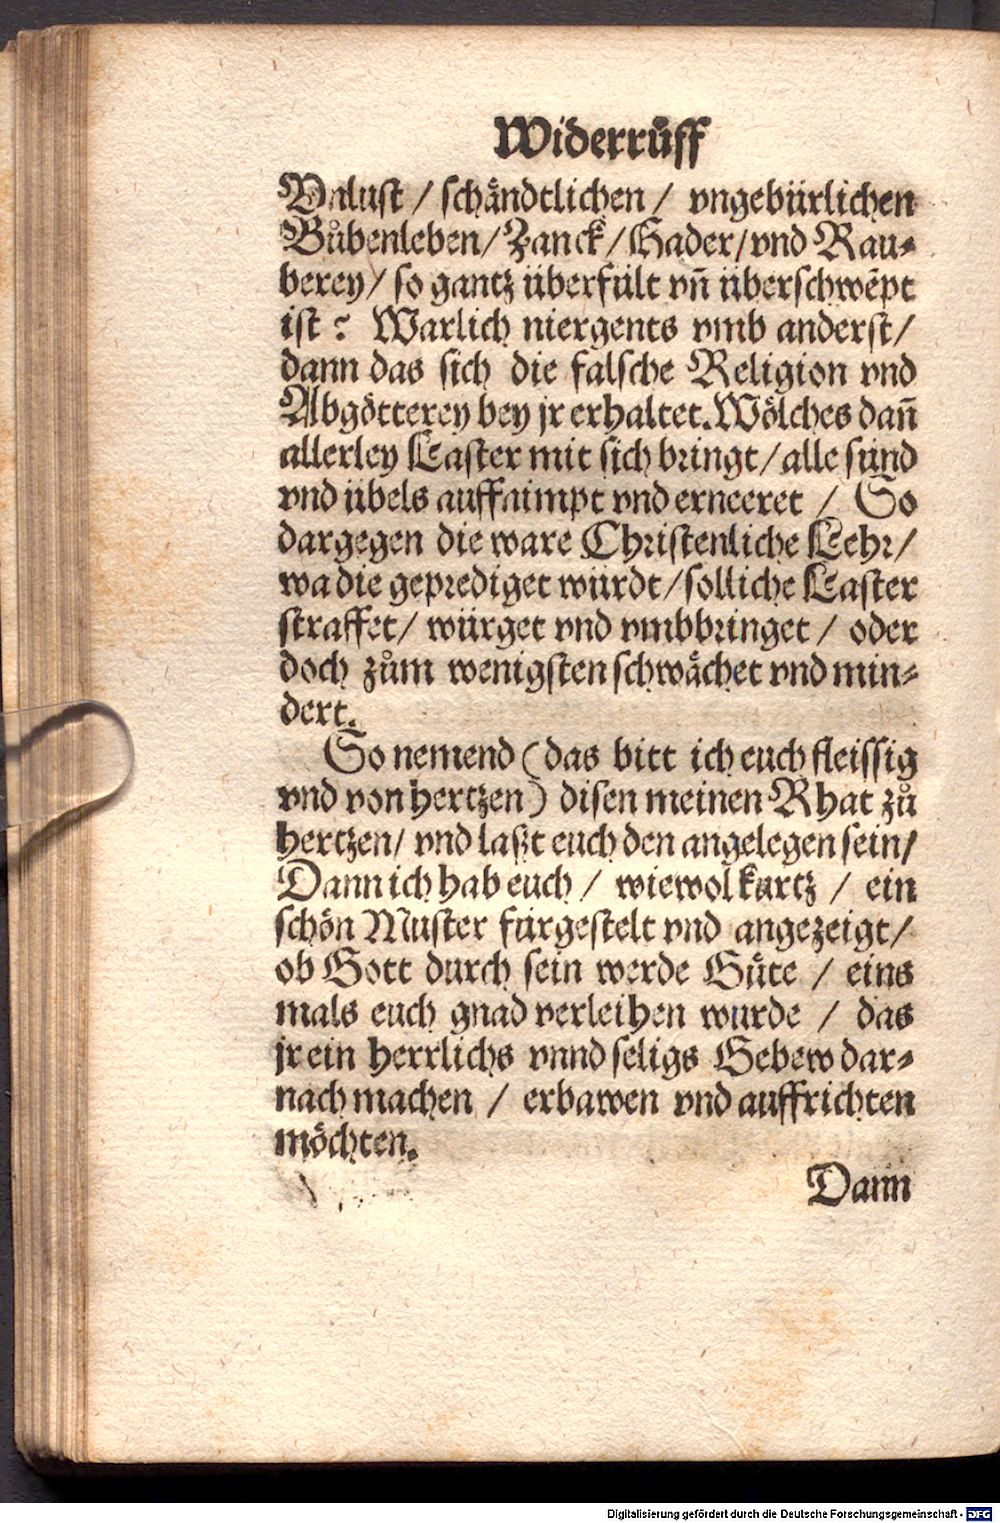 Widerrůff
Vnlust / schåndtlichen / vngebürlichen
Bůbenleben / Zanck / Hader / vnd Rau⸗
berey / so gantz überfült vñ überschwẽpt
ist? Warlich niergents vmb anderst /
dann das sich die falsche Religion vnd
Abgötterey bey jr erhaltet. Wölches dañ
allerley Laster mit sich bringt / alle sünd
vnd übels auffnimpt vnd erneeret / So
dargegen die ware Christenliche Lehr /
wa die geprediget würdt / solliche Laster
straffet / würget vnd vmbbringet / oder
doch zům wenigsten schwächet vnd min⸗
dert.
So nemend (das bitt ich euch fleissig
vnd von hertzen) disen meinen Rhat zů
hertzen / vnd laßt euch den angelegen sein /
Dann ich hab euch / wiewol kurtz / ein
schön Muster fürgestelt vnd angezeigt /
ob Gott durch sein werde Güte / eins
mals euch gnad verleihen wurde / das
jr ein herrlichs vnnd seligs Gebew dar⸗
nach machen / erbawen vnd auffrichten
möchten.
Dann
Digitalisierung gefördert durch die Deutsche Forschungsgemeinschaft - DFG